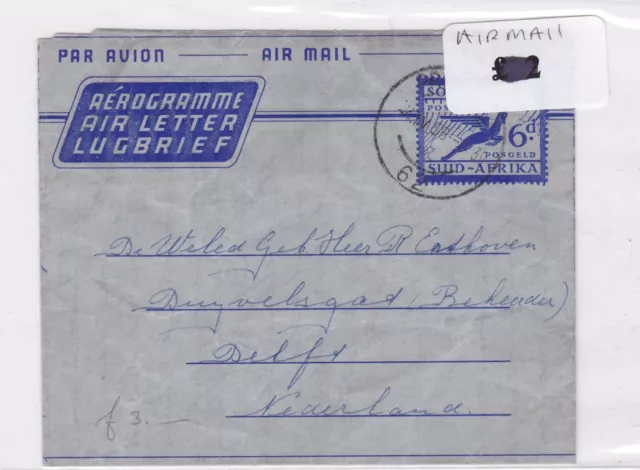 AIRMAIL
£ 2
PAR AVION AIR MAIL
AÉROGRAMME
AIR LETTER
LUGBRIEF
SO
POS
6d.
POSGELD
SUID-AFRIKA
62
De Weled Geb. Heer R Enthoven
Duyvelsgat (Beheerder)
Delft
Nederland.
f 3.—